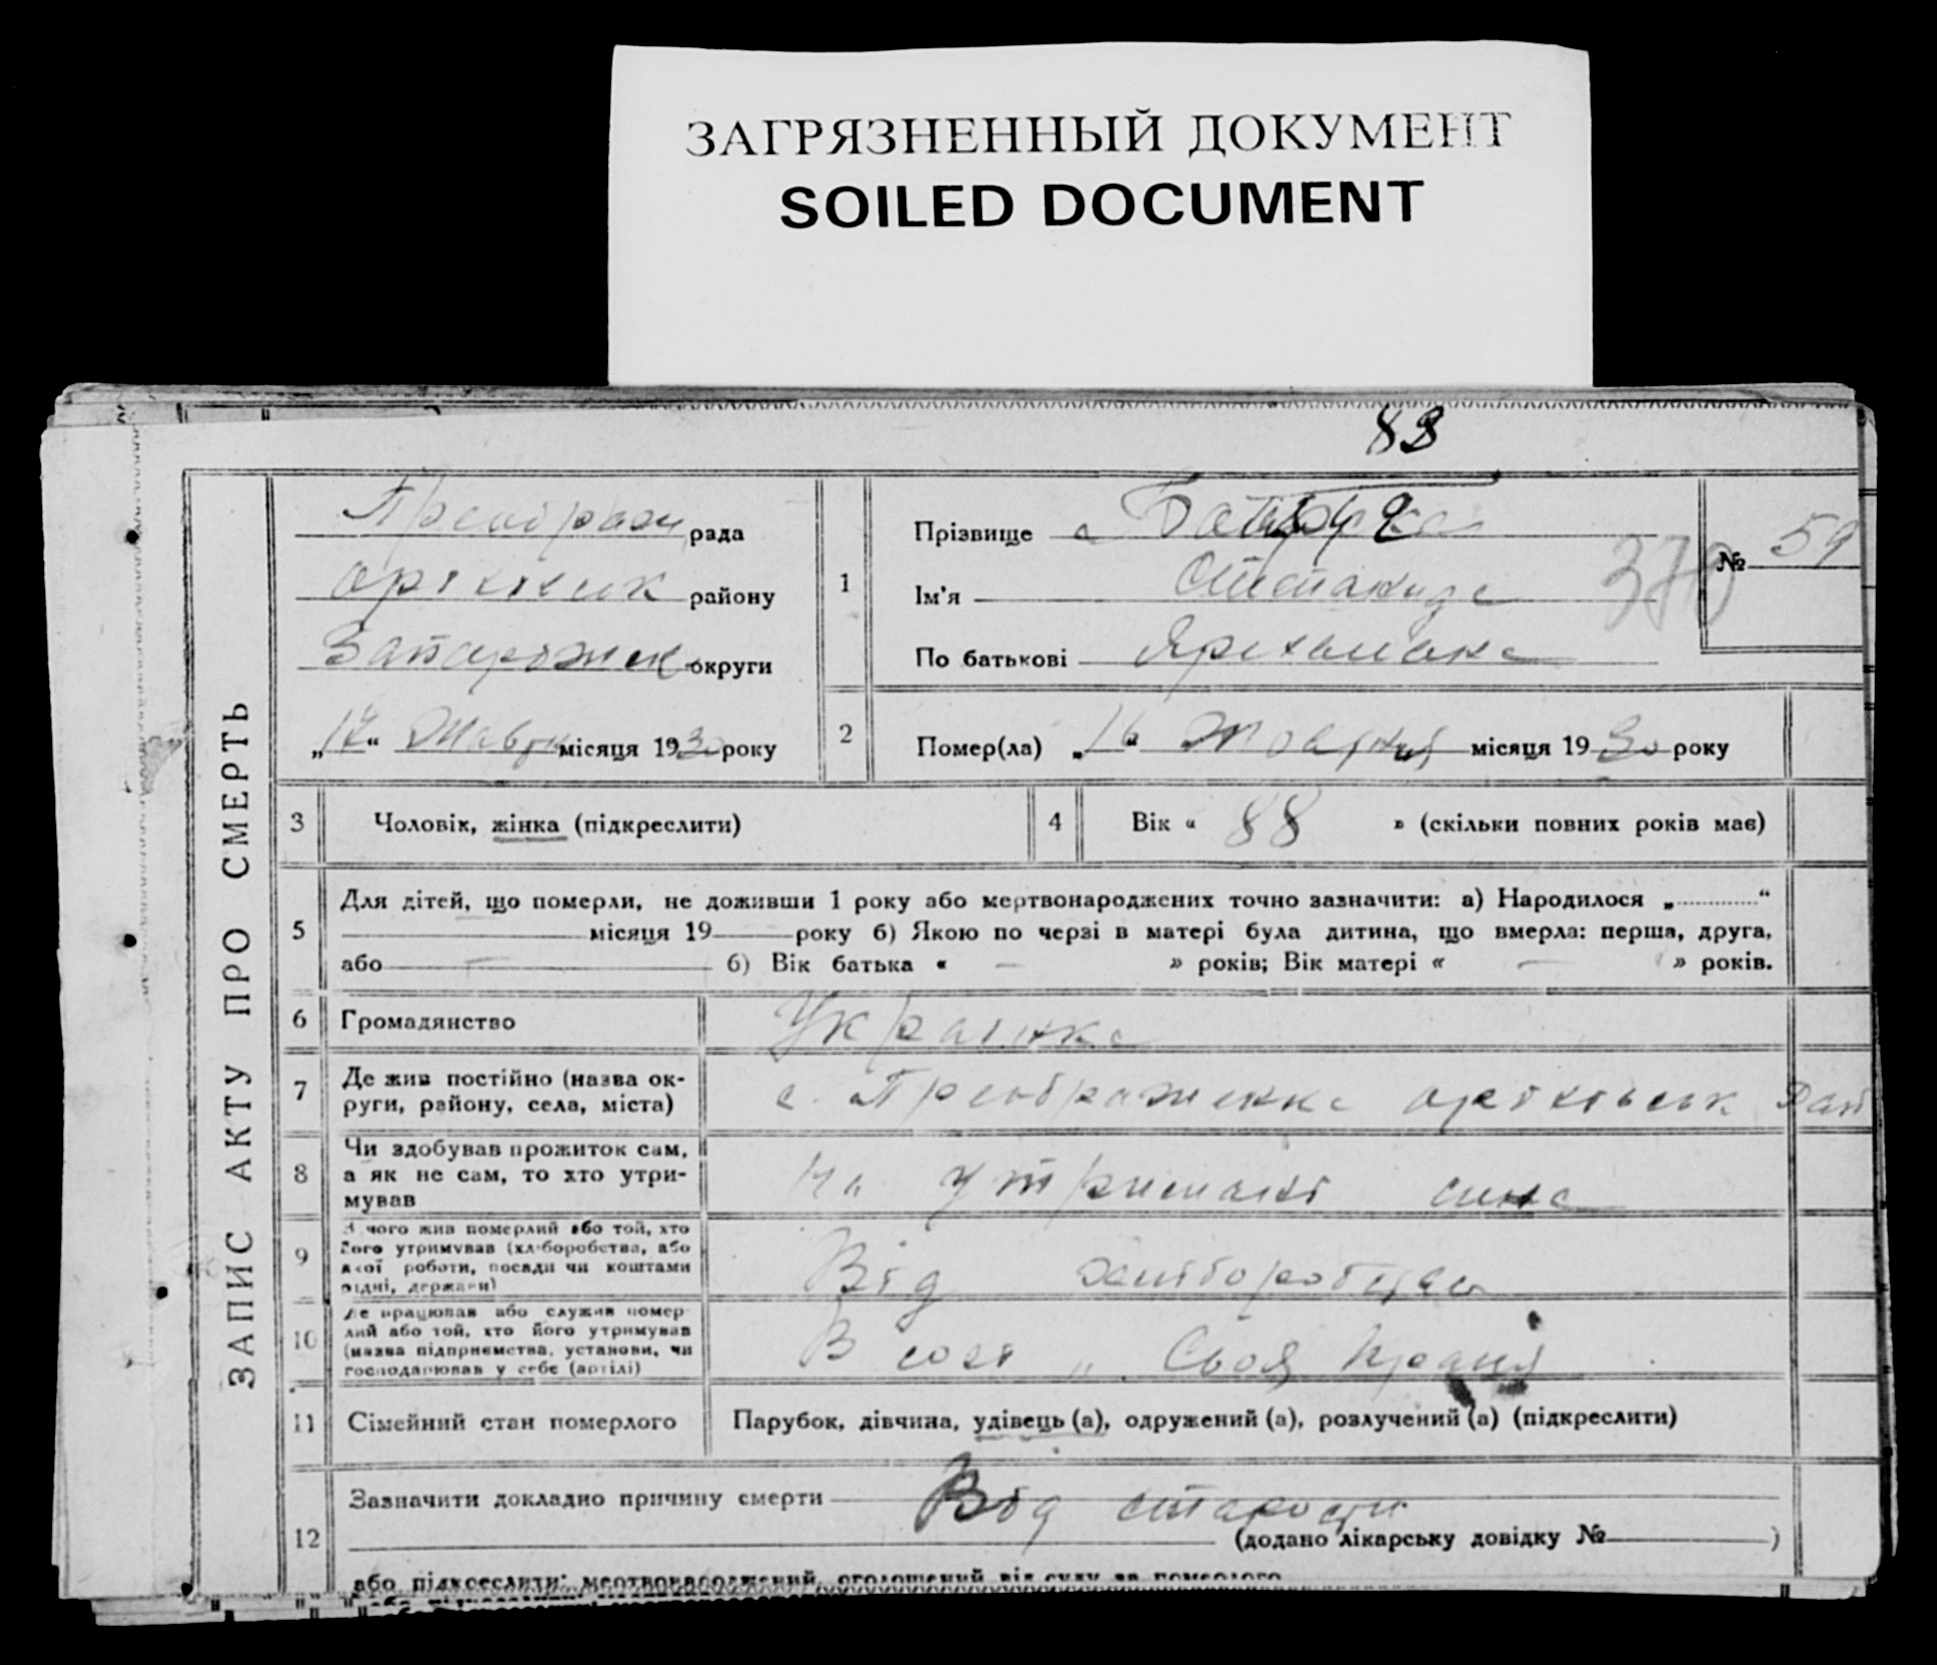 ЗАГРЯЗНЕННЫЙ ДОКУМЕНТ
SOILED DOCUMENT
83
ЗАПИС АКТУ ПРО СМЕРТЬ
Преображ рада
району
Запорожск округи
„17“ Жовтн місяця 1930 року
1
Прізвище
Ім'я
По батькові
№ 59
370
2
Помер(ла) „16“ Жовтня місяця 1930 року
3 Чоловік, жінка (підкреслити)
4 Вік « 88 » (скільки повних років має)
5
Для дітей, що померли, не доживши 1 року або мертвонароджених точно зазначити: а) Народилося „ “
місяця 19 року б) Якою по черзі в матері була дитина, що вмерла: перша, друга,
або — б) Вік батька « — » років; Вік матері « — » років.
6 Громадянство Українка
7
Де жив постійно (назва ок-
руги, району, села, міста)
с. Преображенка оріхівськ рай
8
Чи здобував прожиток сам,
а як не сам, то хто утри-
мував
На утриманні сина
9
З чого жив померлий або той, хто
його утримував (хліборобства, або
якої роботи, посади чи коштами
рідні, держави)
Від
10
Де працював або служив помер-
лий або той, хто його утримував
(назва підприємства, установи, чи
господарював у себе (артілі)
В созі „ Своя праця
11 Сімейний стан померлого Парубок, дівчина, удівець (а), одружений (а), розлучений (а) (підкреслити)
12
Зазначити докладно причину смерти Від старости
(додано лікарську довідку № )
або підкреслити: мертвонароджений, оголошений від суду за померлого